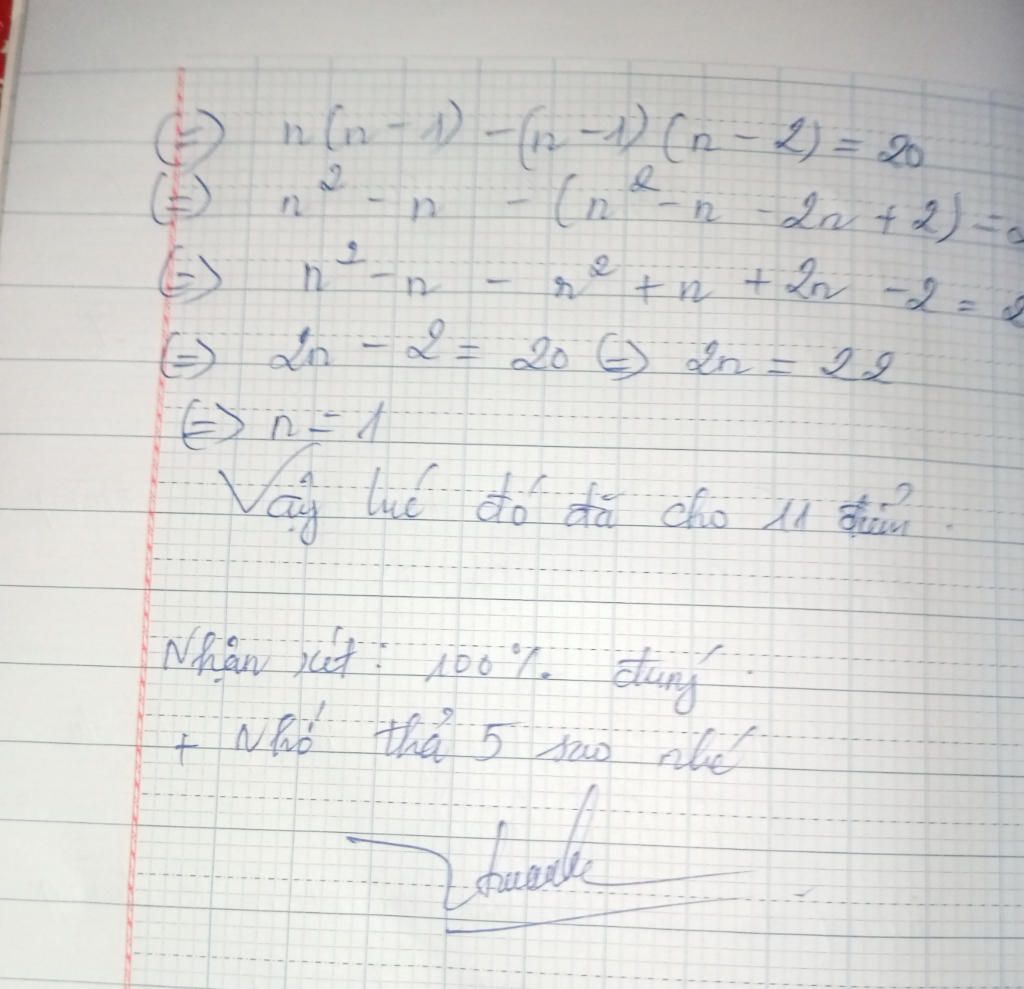 (=) n(n-1) - (n-1)(n-2) = 20
(=) n² - n - (n² - n - 2n + 2) = 2
(=) n² - n - n² + n + 2n - 2 = 2
(=) 2n - 2 = 20 (=) 2n = 22
(=) n = 1
Vậy lúc đó đã cho 11 điểm.
Nhận xét: 100% đúng.
+ Nhớ thả 5 sao nhé